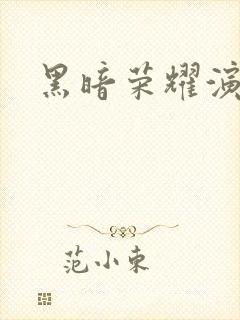 黑暗荣耀演
范小东